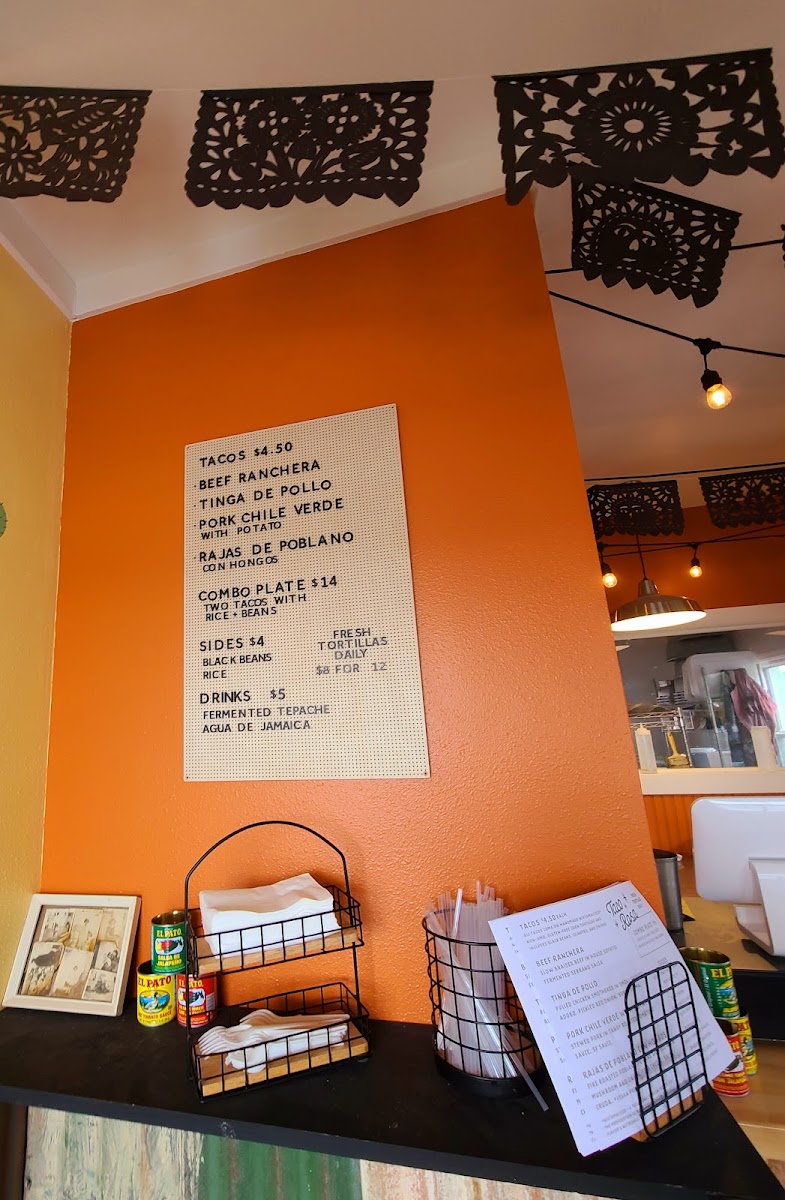 TACOS $4.50
· BEEF RANCHERA
· TINGA DE POLLO
· PORK CHILE VERDE
WITH POTATO
· RAJAS DE POBLANO
CON HONGOS
COMBO PLATE $14
TWO TACOS WITH
RICE + BEANS
SIDES $4
BLACK BEANS
RICE
FRESH
TORTILLAS
DAILY
$8 FOR 12
DRINKS $5
FERMENTED TEPACHE
AGUA DE JAMAICA
EL PATO
SALSA DE
JALAPEÑO
EL PATO
TOMATO SAUCE
Taco +
Rosa
TACOS $4.50 EACH
BEEF RANCHERA
SLOW BRAISED BEEF IN
FERMENTED SALSA
TINGA DE POLLO
PULLED CHICKEN SIMMERED IN
PORK CHILE VERDE
STEWED PORK IN
RAJAS DE POBLANO
FIRE ROASTED
MUSHROOM AND
EL P